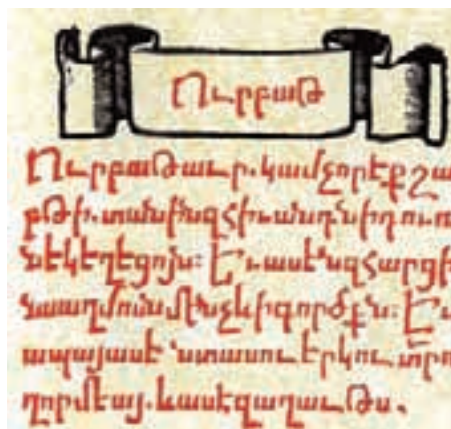 Ուրբաթ
Ուրբաթաւր. կամ չորէքշա
բթի. տանին զհիւանդն ի դուռ
ն էկեղէցոյն: Եւ ասէ զհարցի
սաղմոսն մինչև ի գործքն: Եւ
ապայ ասէ երկու
ղորմէայ. և ասէ զաղաւթս.